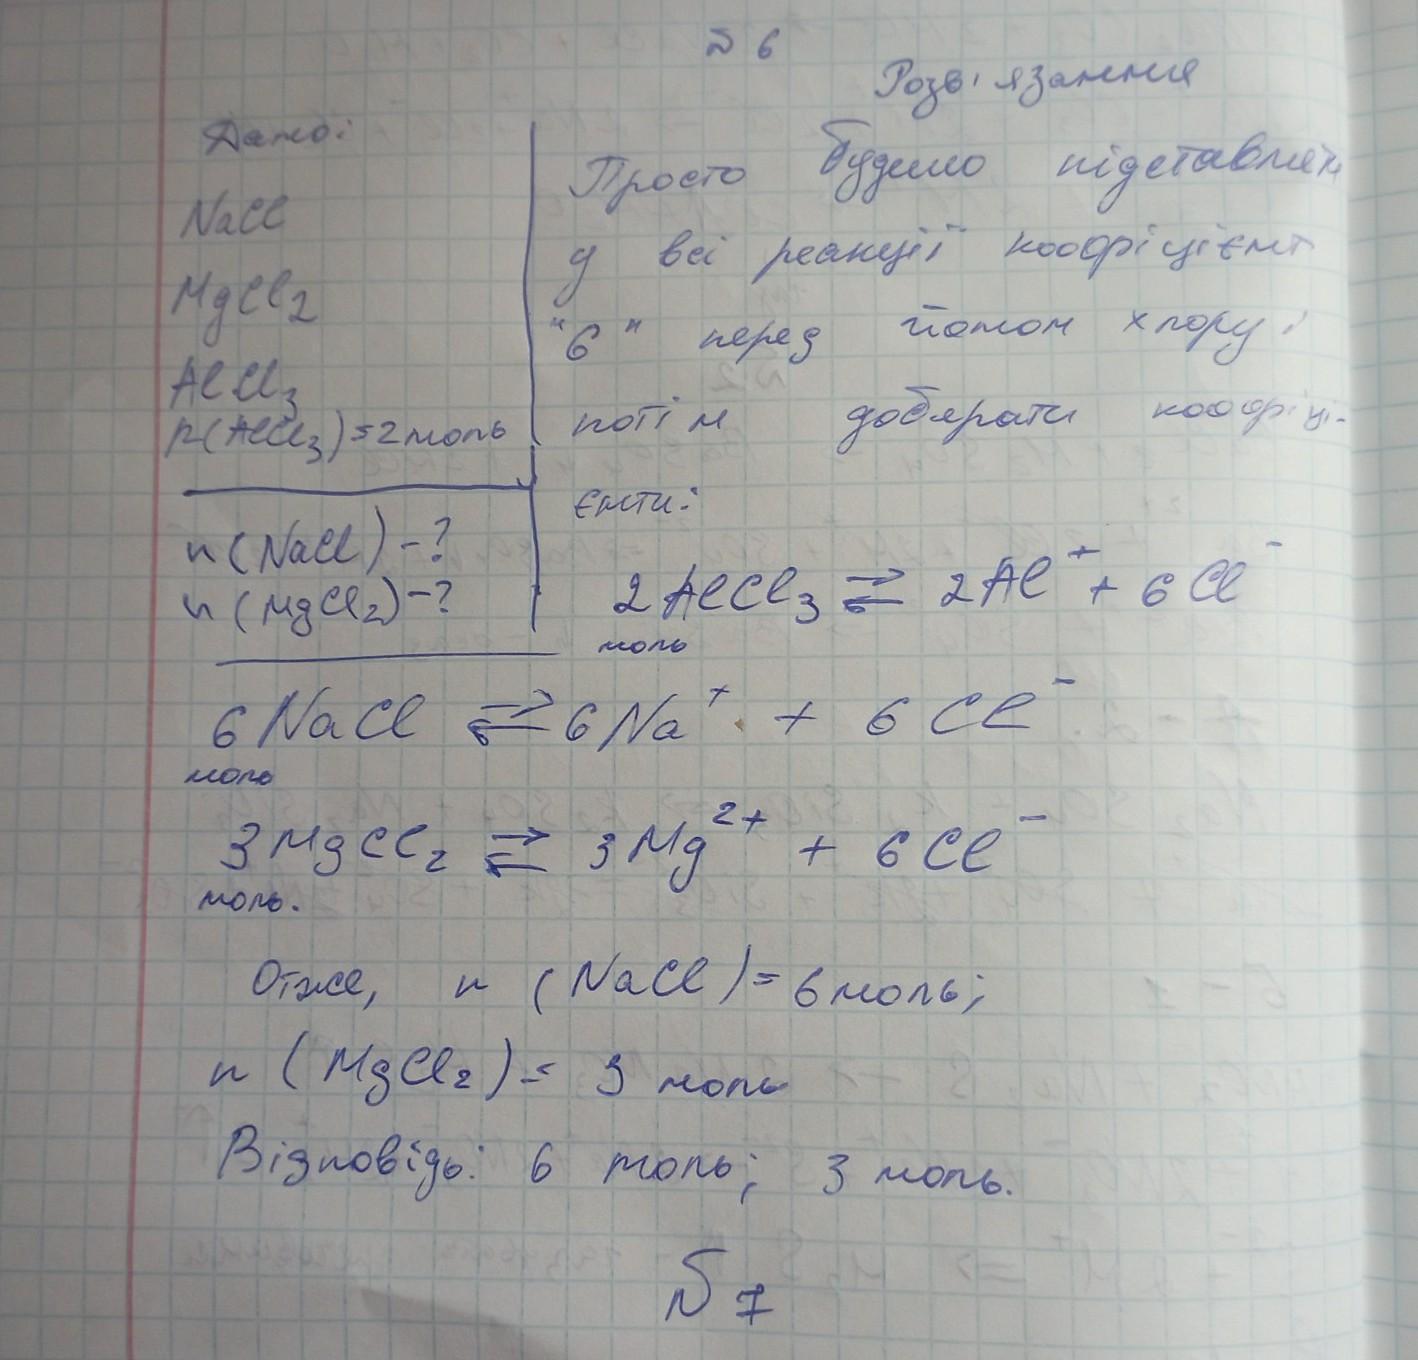 № 6
Розв'язання
Дано:
NaCl
MgCl2
AlCl3
n(AlCl3)=2моль
n(NaCl)-?
n(MgCl2)-?
Просто будемо підставляти
у всі реакції коофіцієнт
"6" перед йоном хлору і
потім добярати коофіці-
єнти:
2AlCl3 ⇄ 2Al+ + 6Cl-
моль
6NaCl ⇄ 6Na+ + 6Cl-
моль
3MgCl2 ⇄ 3Mg2+ + 6Cl-
моль.
Отже, n (NaCl)=6моль;
n (MgCl2)= 3 моль
Відповідь: 6 моль; 3 моль.
№ 7